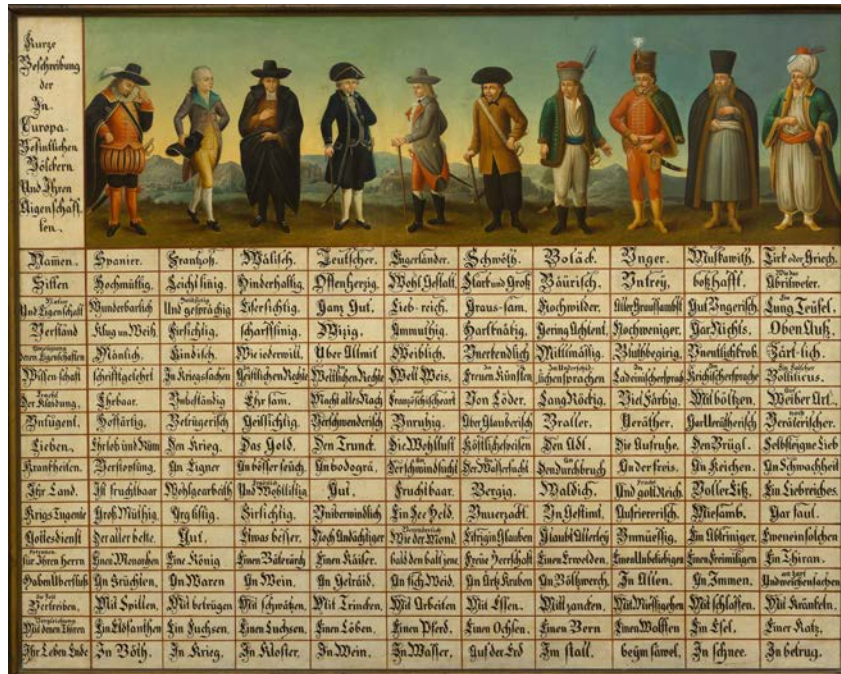 Kurze
Beschreibung
der
In
Europa
Befintlichen
Völckern
Und Ihren
Aigenschaff
ten.
Namen. Spanier. Frantzoß. Wälisch. Teutscher. Engerländer. Schwöth. Boläck. Unger. Muskawith. Tirk oder Griech.
Sitten Hochmüttig. Leichtsinig. Hinderhaltig. Offenherzig. Wohl Gestalt. Stark und Groß Bäurisch. Untrey. boßhafft. Abrilweter.
Und Eigenschaft Wunderbarlich Und gesprächig Eifersichtig. Ganz Gut. Lieb-reich. Graus-sam. Hochwilder. Aller Graussambst Gut Ungerisch. Lung Teüfel.
Verständ Klug un Weiß. Firsichtig. scharffsinig. Wizig. Ammuthig. Hartknätig. Gering Achtent. Nochweniger. Gar Nichts. Oben Auß.
deren Eigenschaften Mänlich. Kindisch. Wie iederwill. Uber Allmit Weiblich. Unerkendlich Mittlmässig. Bluthbegirig. Unentlichkrob. Zärt-lich.
Wissenschaft schrifftgelehrt In Kriegssachen Geistlichen Rechte Weltlichen Rechte Welt Weis. Freuen Künsten sprachen Ladeinischersprach Krichischersprache Bolliticus.
Der Klaidung. Ehrbaar. Unbeständig Ehrsam. Macht alles Nach französischeart Von Löder. Lang Röckig. Viel Färbig. Mit böltzen. Weiber Art.
Untugent. Hoffärtig. Betrügerisch Geillsichtig. Verschwenderisch Unruhig. Aber Glauberisch Braller. Veräther. Gar Verätherisch Veräterischer.
Lieben. Ehrlob und Rüm Den Krieg. Das Gold. Den Trunck. Die Wohllust Köstlichespeisen Den Adl. Die Aufruhe. Den Brügl. Selbsteigne Lieb
Krankheiten. Verstopfung. An Eigner An bösser seüch. An bodogrä. Der schwindsucht Der Wassersucht Den durchbruch An der freis. An Keichen. An Schwachheit
Ihr Land. Ist fruchtbaar Wohlgearbeith Und Wohllistig Gut. Fruchtbaar. Bergig. Waldich. Und gott Reich. Voller Eiß. Ein Liebreiches.
Krigs Tugente Groß Müthig. Arg listig. Firsichtig. Uniberwindlich Ein See Held. Unverzackt. Un Gestimt. Aufriererisch. Miesamb. Gar faul.
Gottesdienst Der aller beste. Gut. Etwas besser. Noch Andächtiger Wie der Mond. Eifrig in Glauben Glaubt Allerley Unmüessig. Ein Abtriniger. Eweneinsolchen
für Ihren Herrn Einen Monarchen Eine König Einen Käiser. bald den balt jene. Freüe Herrschaft Einen Erwelden. Einen Unbeliebigen Einen Freimiligen Ein Thiran.
Haben Uberfluß An Früchten. An Waren An Wein. An Getraid. An fich Weid. An Ärtz Kruben An Böltzwerch. In Allen. An Immen. Und weichen sachen
Vertreiben. Mit Spillen. Mit betrügen Mit schwätzen. Mit Trincken. Mit Arbeiten Mit Essen. Mitt zancken. Mit Miessigehen Mit schlaffen. Mit Kränkeln.
Mit denen Thiren Ein Elofanthen Ein Fuchsen. Einen Luchsen. Einen Löben. Einen Pferd. Einen Ochsen. Einen Bern Einen Wolffen Ein Esel. Einer Katz.
Ihr Leben Ende In Böth. In Krieg. In Kloster. In Wein. In Wasser. Auf der Erd Im stall. beym säwel. In schnee. In betrug.